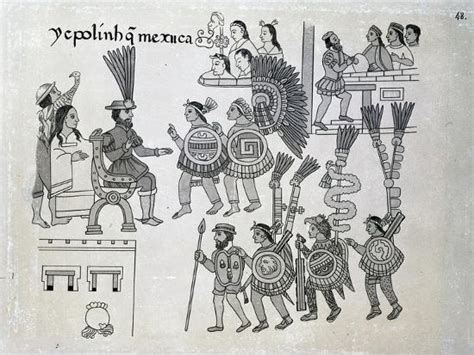 ycpoliuh q̃ mexica
48.